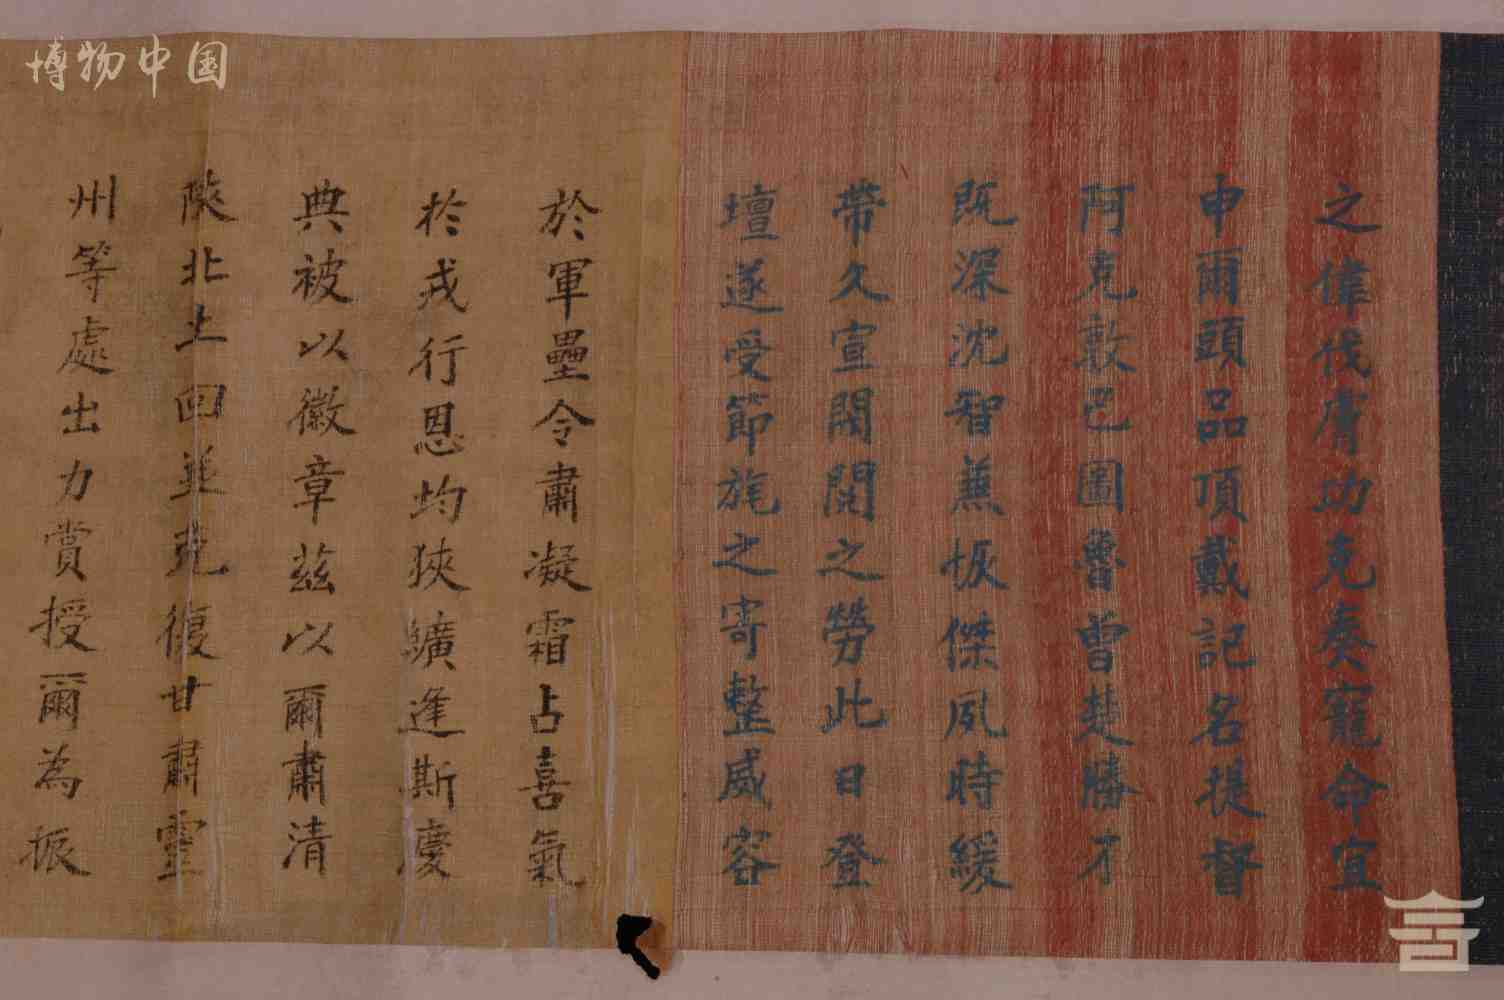 博物中国
之偉伐膚功克奏寵命宜
申爾頭品頂戴記名提督
阿克敦巴圖魯曾楚勝才
既深沈智蕪恢傑夙時緩
帶久宣閑閱之勞此日登
壇遂受節旄之寄整威容
於軍壘令肅凝霜占喜氣
於戎行恩均狹纊逢斯慶
典被以徽章茲以爾肅清
陝北土回並克復甘肅靈
州等處出力賞授爾為振